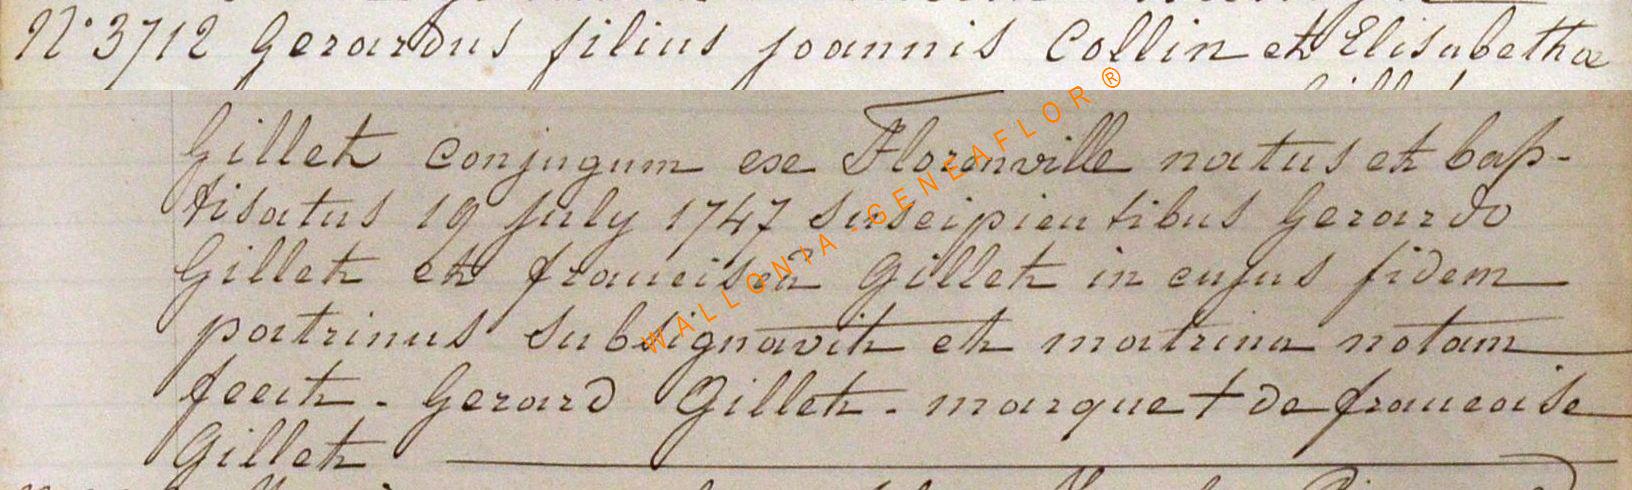 N° 3712 Gerardus filius joannis Collin et Elisabethæ
Gillet conjugum ex Florenville natus et bap-
tisatus 19 july 1747 suscipientibus Gerardo
Gillet et francisca Gillet in cujus fidem
patrinus subsignavit et matrina notam
fecit - Gerard Gillet - marque + de francoise
Gillet
WALLONIA - GENEAFLOR ®